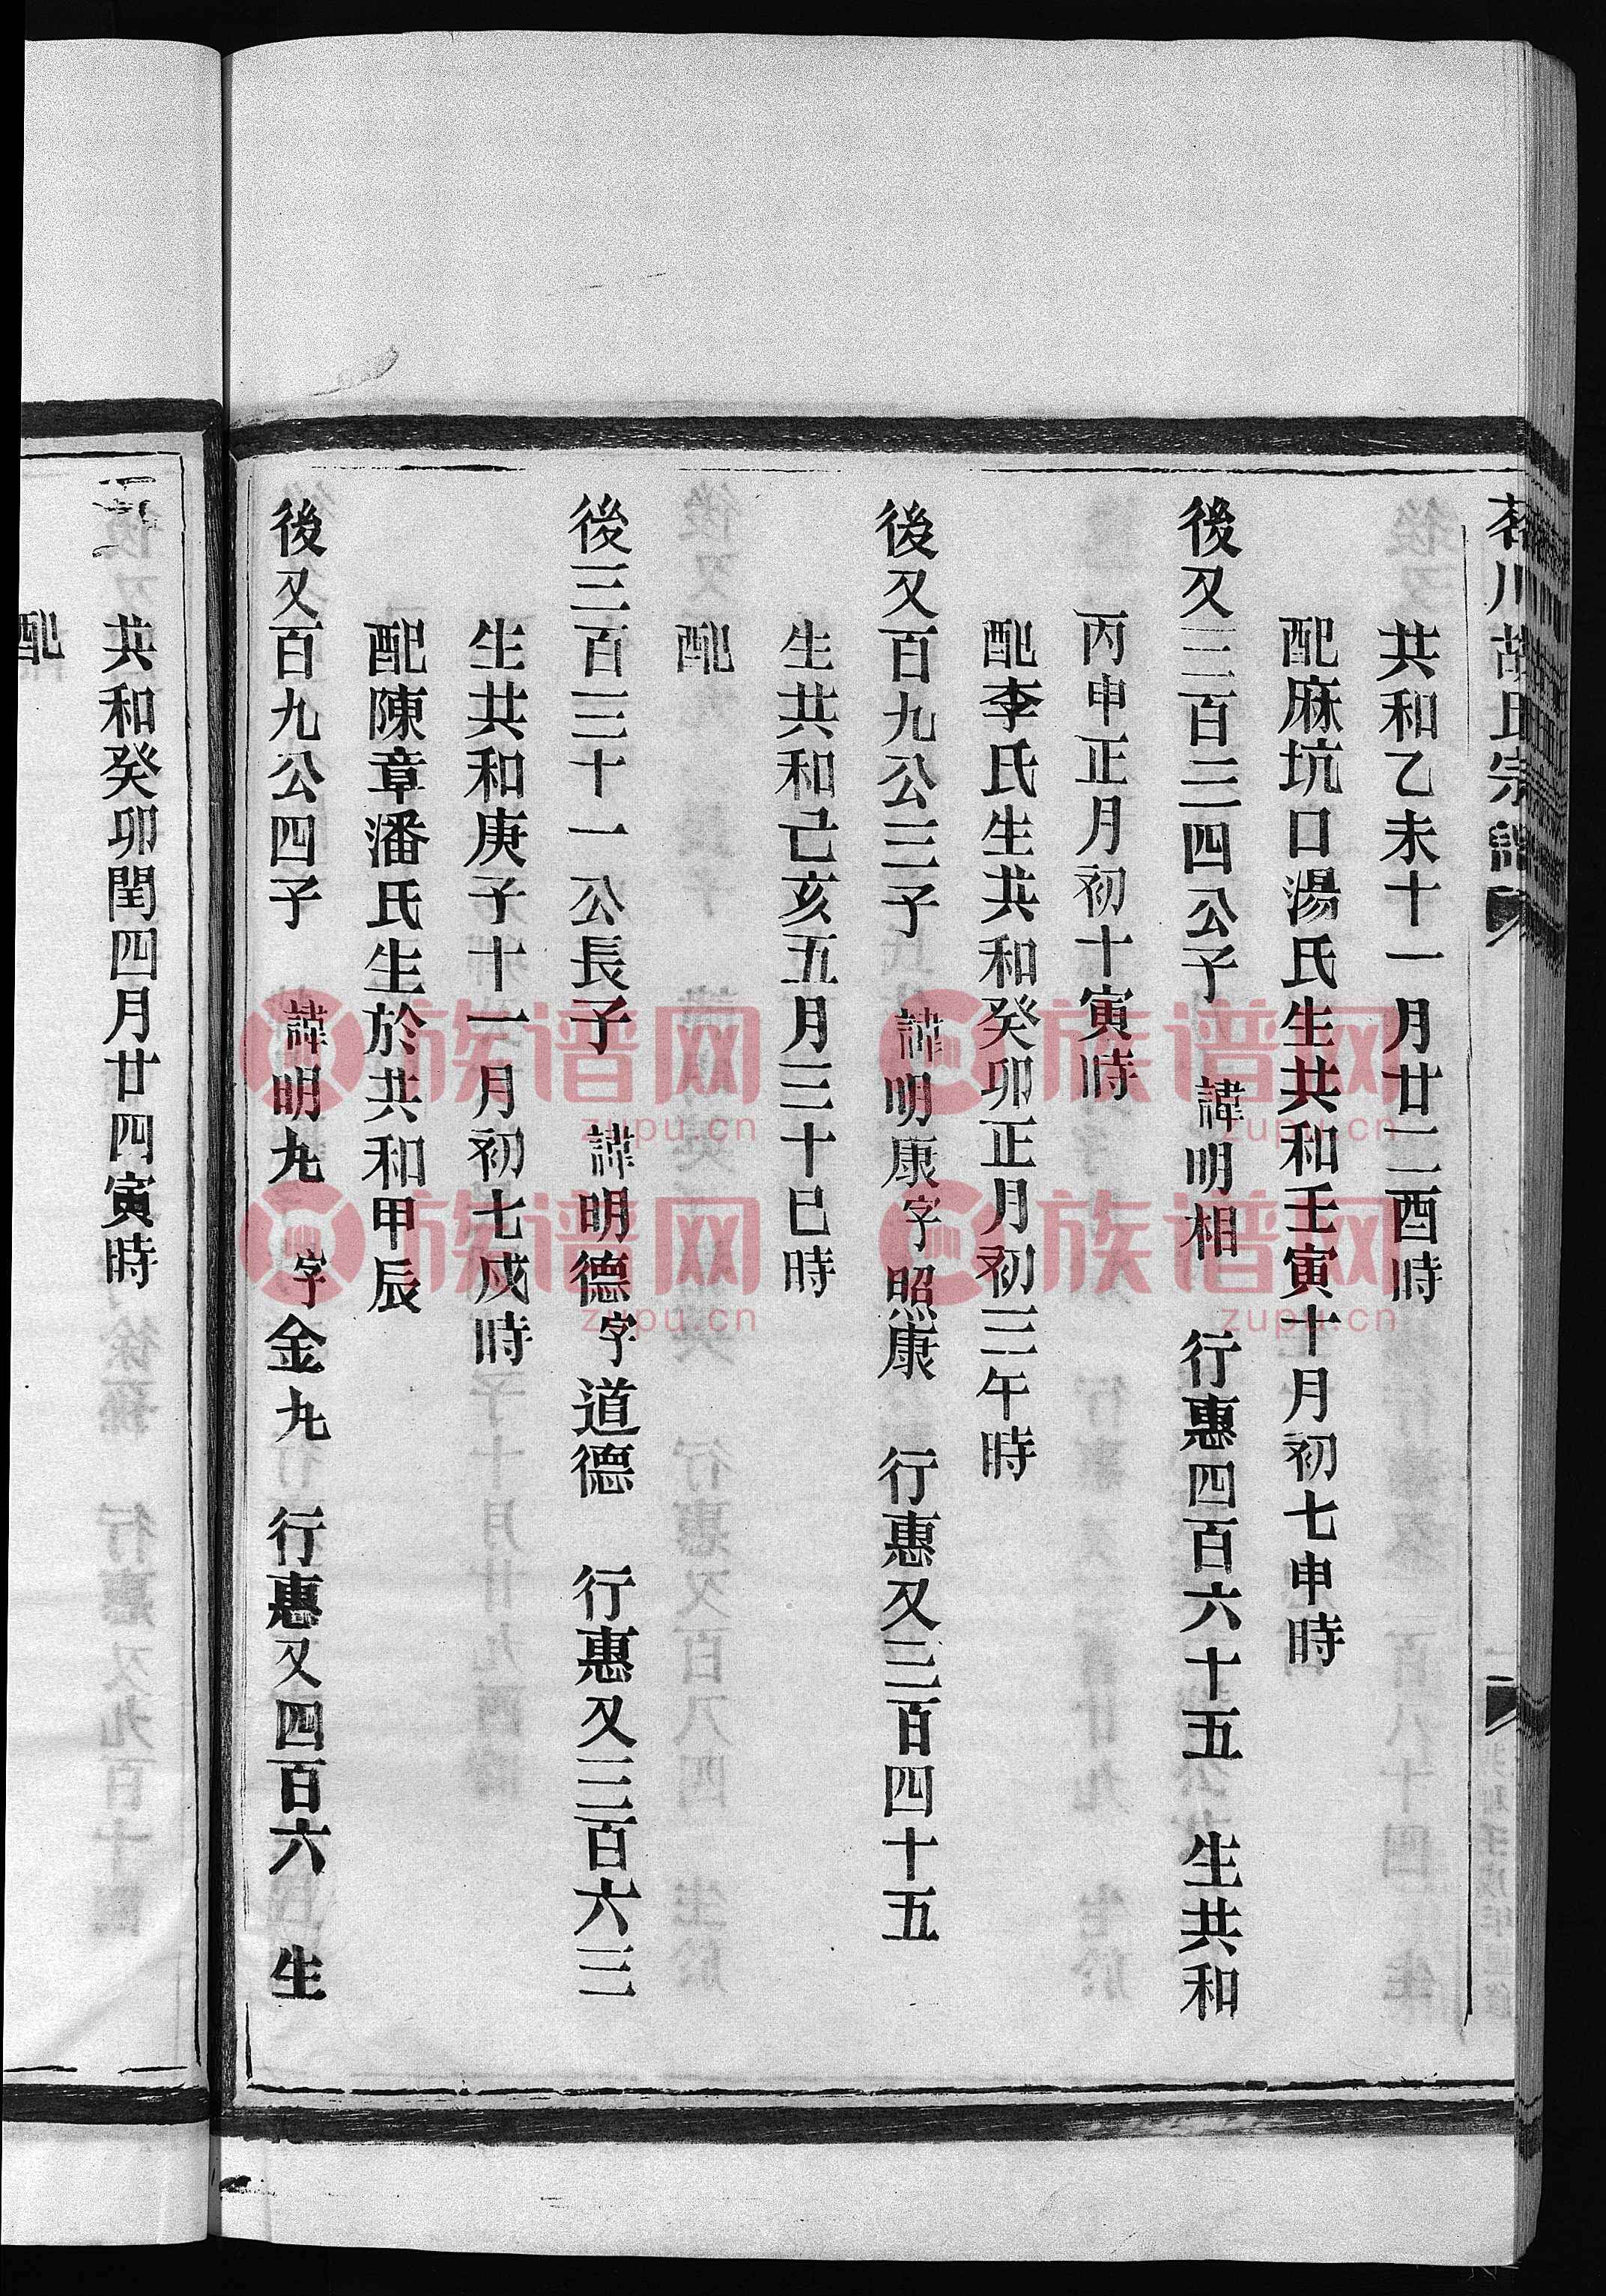 川胡氏宗譜
共和乙未十一月廿二酉時
配麻坑口湯氏生共和壬寅十月初七申時
後又三百三四公子 諱明相 行惠四百六十五 生共和
丙申正月初十寅時
配李氏生共和癸卯正月初三午時
後又百九公三子 諱明康字照康 行惠又三百四十五
生共和己亥五月三十巳時
配
後三百三十一公長子 諱明德字道德 行惠又三百六三
生共和庚子十一月初七戌時
配陳章潘氏生於共和甲辰
後又百九公四子 諱明九 字金九 行惠又四百六 生
共和癸卯閏四月廿四寅時
配
族谱网
zupu.cn
族谱网
zupu.cn
族谱网
zupu.cn
族谱网
zupu.cn